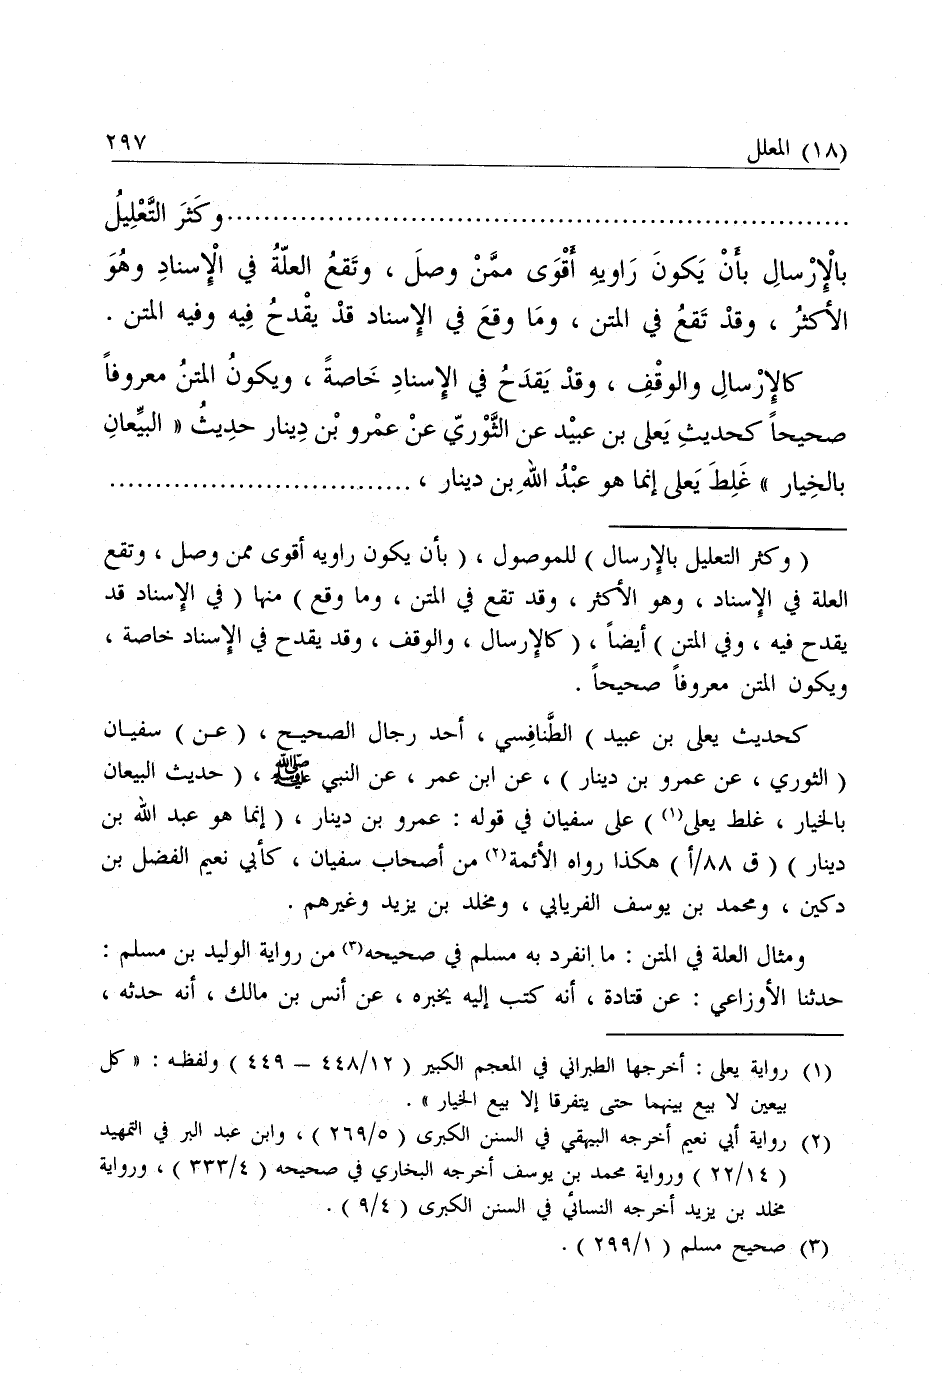 (١٨) المعلل ٢٩٧
................................................................وكَثرَ التَّعْلِيلُ
بالْإِرْسالِ بأَنْ يَكونَ رَاويهِ أَقْوَى ممَّنْ وصلَ ، وتَقعُ العلّةُ في الْإِسنادِ وهُوَ
الأكثرُ ، وقدْ تَقعُ في المتن ، ومَا وقعَ في الإِسناد قدْ يقْدحُ فِيه وفيه المتن .
كالإِرْسالِ والوقْفِ ، وقدْ يَقدَحُ في الإِسنادِ خَاصةً ، ويكونُ المتنُ معروفاً
صحيحاً كحديثِ يَعلى بن عبيْد عن الثَّوْريّ عنْ عمْرو بْن دِينار حدِيثُ « البيِّعانِ
بالخِيار » غَلِطَ يَعلى إنما هو عبْدُ اللهِ بن دينار ، ................................
( وكثر التعليل بالإِرسال ) للموصول ، ( بأن يكون راويه أقوى ممن وصل ، وتقع
العلة في الإِسناد ، وهو الأكثر ، وقد تقع في المتن ، وما وقع ) منها ( في الإِسناد قد
يقدح فيه ، وفي المتن ) أيضاً ، ( كالإرسال ، والوقف ، وقد يقدح في الإِسناد خاصة ،
ويكون المتن معروفاً صحيحاً .
كحديث يعلى بن عبيد ) الطَّنافِسي ، أحد رجال الصحيح ، ( عن ) سفيان
( الثوري ، عن عمرو بن دينار ) ، عن ابن عمر ، عن النبي ﷺ ، ( حديث البيعان
بالخيار ، غلط يعلى(١) ) على سفيان في قوله : عمرو بن دينار ، ( إنما هو عبد الله بن
دينار ) ( ق ٨٨/أ ) هكذا رواه الأئمة(٢) من أصحاب سفيان ، كأبي نعيم الفضل بن
دكين ، ومحمد بن يوسف الفريابي ، ومخلد بن يزيد وغيرهم .
ومثال العلة في المتن : ما انفرد به مسلم في صحيحه(٣) من رواية الوليد بن مسلم :
حدثنا الأوزاعي : عن قتادة ، أنه كتب إليه يخبره ، عن أنس بن مالك ، أنه حدثه ،
(١) رواية يعلى : أخرجها الطبراني في المعجم الكبير ( ٤٤٨/١٢ – ٤٤٩ ) ولفظه : « كل
بيعين لا بيع بينهما حتى يتفرقا إلا بيع الخيار » .
(٢) رواية أبي نعيم أخرجه البيهقي في السنن الكبرى ( ٢٦٩/٥ ) ، وابن عبد البر في التمهيد
( ٢٢/١٤ ) ورواية محمد بن يوسف أخرجه البخاري في صحيحه ( ٣٣٣/٤ ) ، ورواية
مخلد بن يزيد أخرجه النسائي في السنن الكبرى ( ٩/٤ ) .
(٣) صحيح مسلم ( ٢٩٩/١ ) .